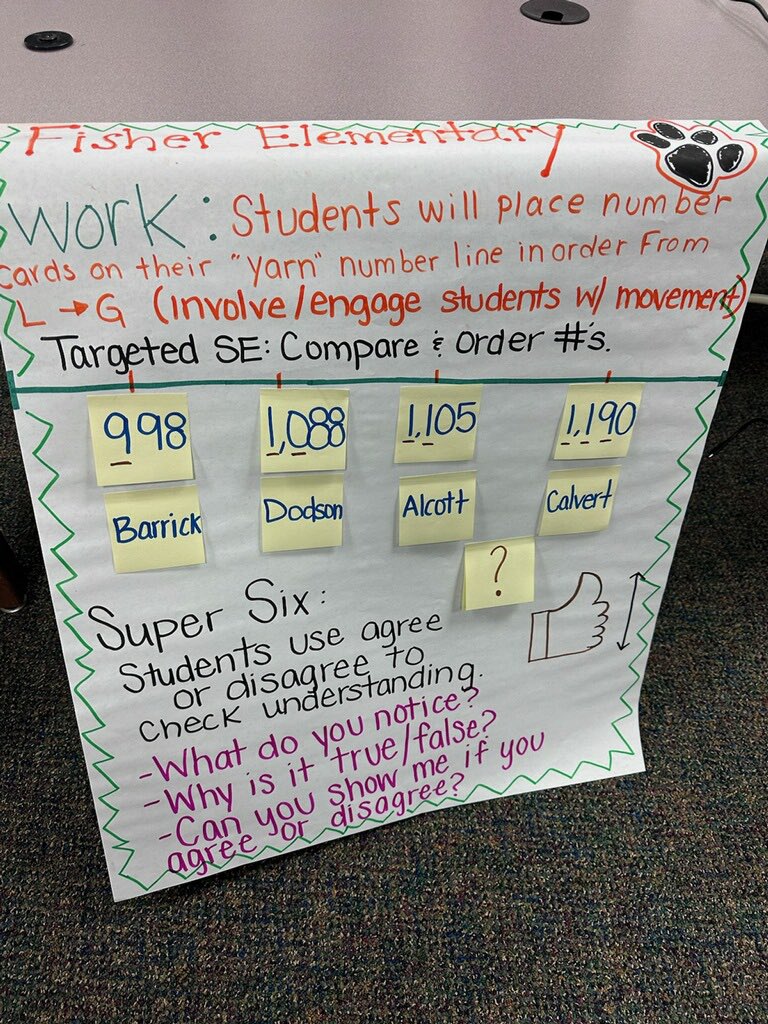 Fisher Elementary
Work: Students will place number
cards on their "yarn" number line in order From
L → G (involve/engage students w/ movement)
Targeted SE: Compare & Order #'s.
998 1,088 1,105 1,190
Barrick Dodson Alcott Calvert
?
Super Six:
Students use agree
or disagree to
check understanding.
-What do you notice?
-Why is it true/false?
-Can you show me if you
agree or disagree?